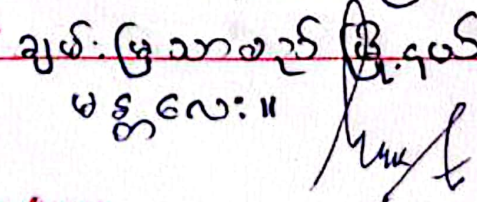 ချမ်းမြသာစည်မြို့နယ်
မန္တလေး။